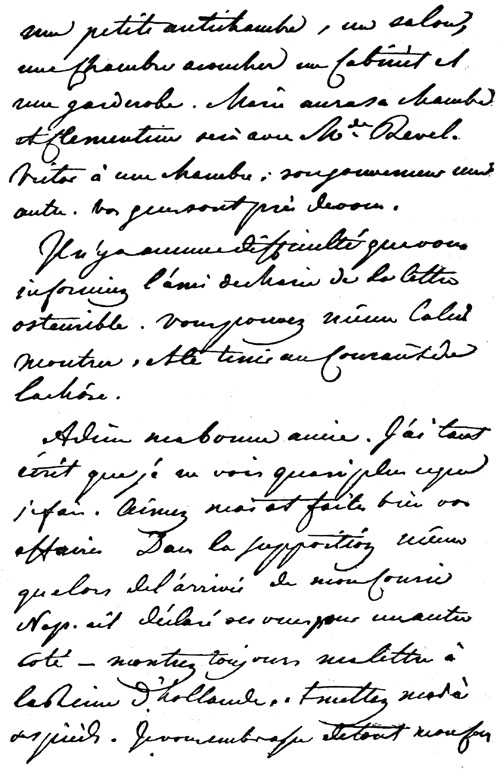 une petite antichambre, un salon,
une chambre acoucher un Cabinèt et
une garderobe. Marie aura sa chambre
et Clementine sera avec Mde Bevel.
Victor à une chambre; son gouverneur une
autre. vos gens sont près de vous.
Il n'y a aucune difficulté que vous
informiez l'ami de Marie de la lettre
ostensible. vous pouvez même la lui
montrer, et le tenir au Courant de
la chôse.
Adieu ma bonne amie. J'ai tant
écrit que je ne vois quasi plus ce que
je fais. Aimez moi et faites bien vos
affaires Dans la supposition même
que lors de l'arrivée de mon Courrier
Nap. ait déclaré ses vues pour un autre
côté – montrez toujours ma lettre à
la Reine d'hollande, et mettez moi à
ses pieds. Je vous embrasse de tout mon